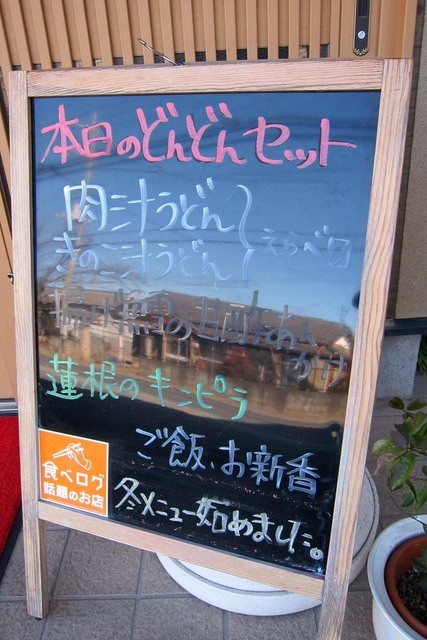 本日のどんどんセット
肉汁うどん
きのこ汁うどん
えらべる
蓮根のキンピラ
ご飯、お新香
冬メニュー始めました。
食べログ
話題のお店